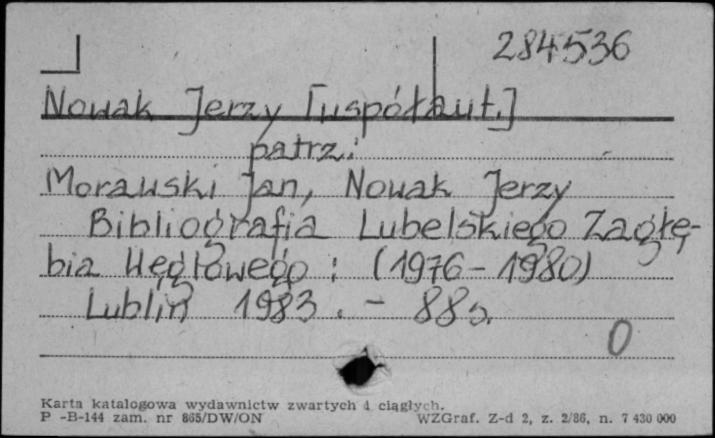 284536
Nowak Jerzy [współaut.]
patrz:
Morawski Jan, Nowak Jerzy
Bibliografia Lubelskiego Zagłę-
bia Węglowego : (1976 - 1980)
Lublin 1983. - 88 s.
0
Karta katalogowa wydawnictw zwartych i ciągłych.
P -B-144 zam. nr 865/DW/ON WZGraf. Z-d 2, z. 2/86, n. 7 430 000